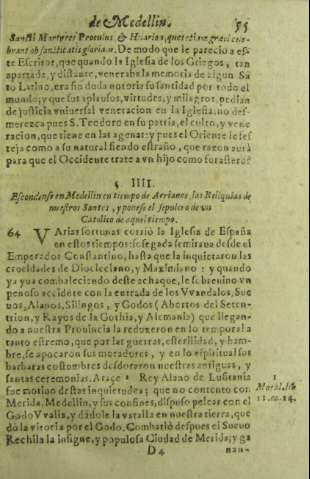 de Medellin. 55
Sancti Martyres Proculus & Hilarius, quos etiam græci cele-
brant ob sanctitatis gloriam. De modo que le pareciò a es-
te Escritor, que quando la Iglesia de los Griegos, tan
apartada, y distante, veneraba la memoria de algun Sã
to Latino, era sin duda notoria su santidad por todo el
mundo; y que sus aplausos, virtudes, y milagros, pedian
de justicia vniuersal veneracion en la Iglesia. no des-
merezca pues S. Teodoro en su patria, el culto, y vene
racion, que tiene en las agenas: y pues el Oriente le fes
teja como a su natural siendo estraño, que razon aurà
para que el Occidente trate a vn hijo como forastero?
§. IIII.
Escondense en Medellin en tiempo de Arrianos, las Reliquias de
nuestros Santos, y ponese el sepulcro de vn
Catolico de aquel tiempo.
64 VArias fortunas corriò la Iglesia de España
en estos tiempos: sosegada se miraua desde el
Emperador Constantino, hasta que la inquietaron las
crueldades de Diocleciano, y Maximiano: y quando
ya yua combaleciendo deste achaque, le sobrevino vn
penoso accidẽte con la entrada de los Vvandalos, Sue
uos, Alanos, Silingos, y Godos (Abortos del Seten-
trion, y Rayos de la Gothia, y Alemania) que llegan-
do a nuestra Prouincia la reduxeron en lo temporal a
tanto estremo, que por las guerras, esterilidad, y ham-
bre, se apocaron sus moradores, y en lo espiritual sus
barbaras costumbres desdoraron nuestras antiguas, y
santas ceremonias. Atace Rey Alano de Lusitania
fue motiuo destas inquietudes; que no contento con
Merida, Medellin, y sus confines, dispuso pelear con el
Godo Vvalia, y dãdole la batalla en nuestra tierra, que
dò la vitoria por el Godo. Combatiò despues el Sueuo
Rechila la insigne, y populosa Ciudad de Merida; y ga
D 4 nan-